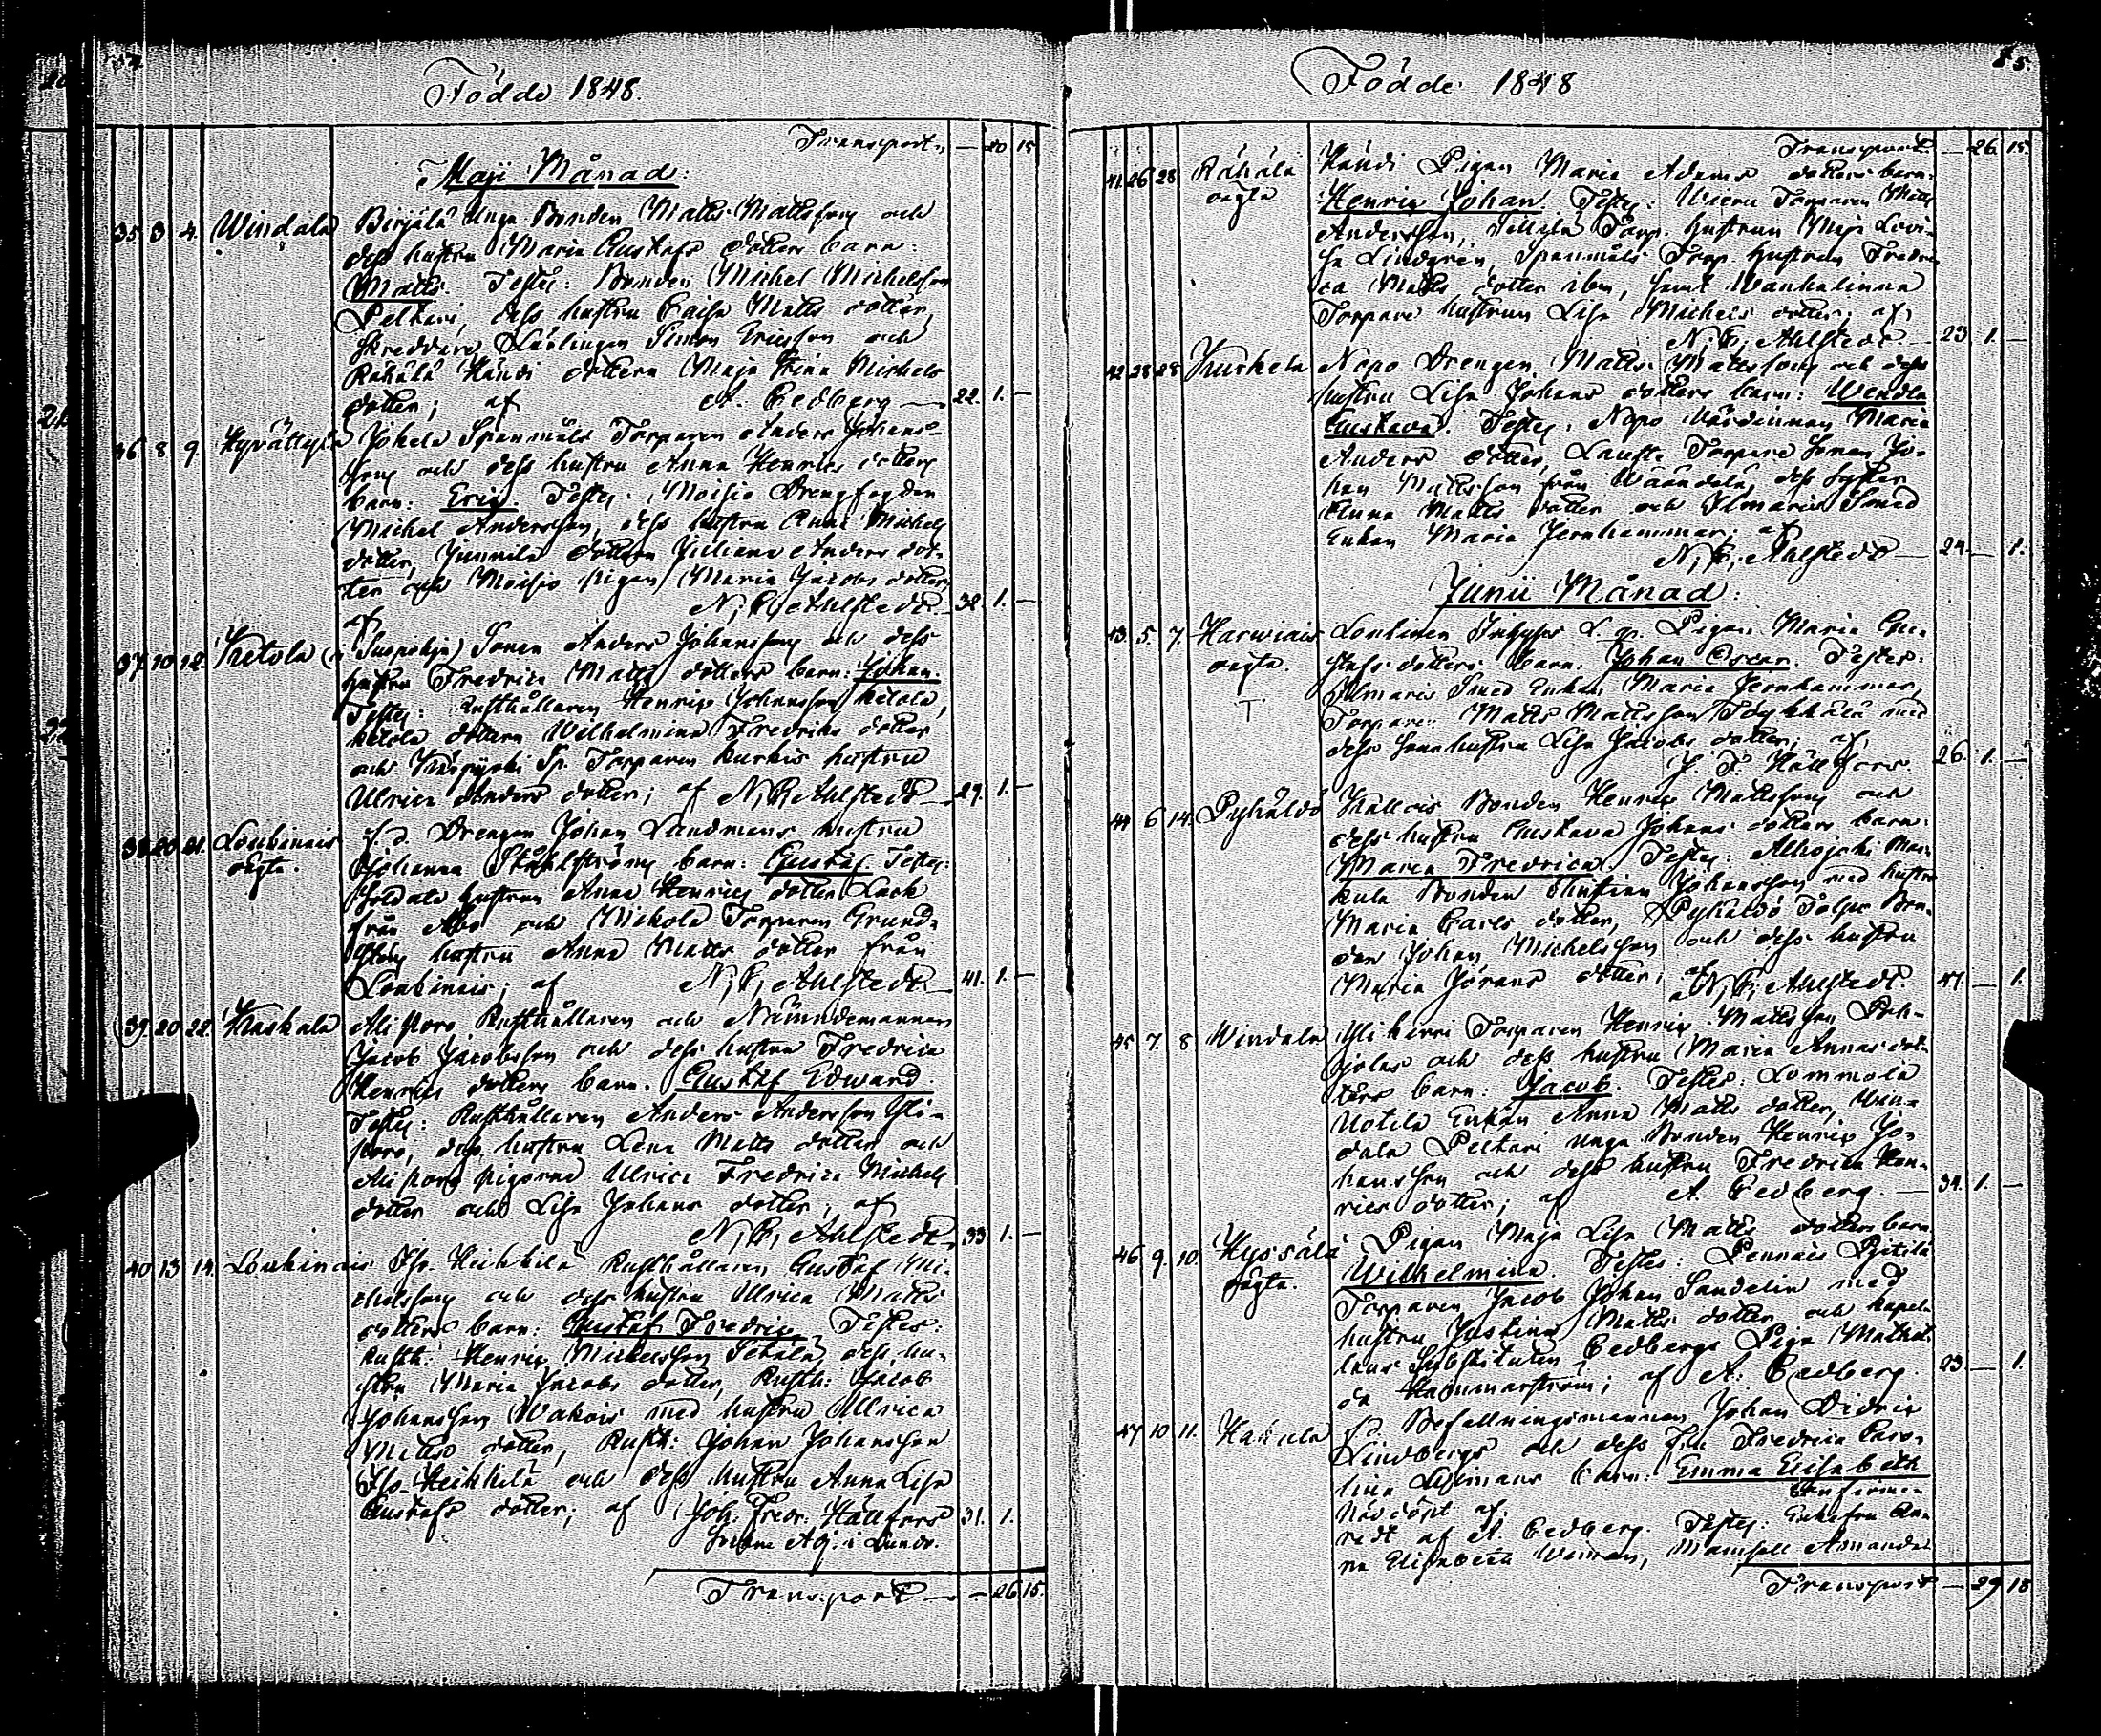 84.
Födde 1848.
Transport — 20 15
Maji Månad.
35 3 4. Windala Birjälä Unga Bonden Matts Mattsson och
dess hustru Maria Gustafs dotters barn:
Matts. Testes: Bonden Michel Michelsson
Peltari, dess hustru Caisa Matts dotter,
Skreddare Lärlingen Simon Ericsson och
Rähälä Händi dottern Maja Stina Michels
dotter; af A. Cedberg — 22. 1. —
36 8 9. Hyvättylä Johela Spanmåls Torparen Anders Johans-
son och dess hustru Anna Henrics dotters
barn: Eric. Testes: Moisio Drengfogden
Michel Andersson, dess hustru Anna Michels
dotter, Junnila dottern Juliana Anders dot-
ter och Moisio pigan Maria Jacobs dotter,
af N. C. Ahlstedt — 32. 1. —
37. 10 12. Ketola Sonen Anders Johansson och dess
hustru Fredrica Matts dotters barn: Johan.
Testes: Rusthållaren Henric Johansson Ketola,
Ketola dottern Wilhelmina Fredriks dotter
och Torparen Kurkis hustru
Ulrica Anders dotter; af N. C. Ahlstedt — 29. 1. —
38. 20 21. Loukinais f. d. Drengen Johan Landmans hustru
oägta. Johanna Ståhlströms barn: Gustaf. Testes:
Soldats hustrun Anna Henrics dotter Lack
från Åbo och Nickola Torparen Grund-
ströms hustru Anna Matts dotter från
Loukinais; af N. C. Ahlstedt — 41. 1. —
39. 20 22. Kaskala Ali Poro Rusthållaren och Nämndemannen
Jacob Jacobsson och dess hustru Fredrica
Henrics dotters barn. Gustaf Edward.
Testes: Rusthållaren Anders Andersson Yli-
poro, dess hustru Lena Matts dotter och
Ali Poro pigorne Ulrica Fredrica Michels
dotter och Lisa Johans dotter, af
N. C. Ahlstedt — 33 1. —
40 13 14. Loukinais Iso Heikkilä Rusthållaren Gustaf Mi-
chelsson och dess hustru Ulrica Matts
dotters barn: Gustaf Fredric. Testes:
Rusth: Henric Michelsson Sokala, dess hu-
stru Maria Jacobs dotter, Rusth: Jacob
Johansson Wakois med hustru Ulrica
Matts dotter, Rusth: Johan Johansson
Iso Heikkilä och dess hustru Anna Lisa
Gustafs dotter; af Joh. Fredr. Hällfors 31. 1.
Sockne Adj: i Lundo.
Transport — 26 15.
85.
Födde 1848
Transport — 26 15.
41. 26 28 Rähälä Händi Pigan Maria Adams dotters barn:
oägta Henric Johan. Testes: Wieru Torparen Matts
Andersson, Torp. hustrun Maja Lovi-
sa Lindgren, Spanmåls Torp. hustrun Fredri-
ca Matts dotter ibm, samt Wanhalinna
Torpare hustrun Lisa Michels dotter; af
N. C. Ahlstedt — 23 1. —
42 28 28 Kurkela Nopo Drengen Matts Mattsson och dess
hustru Lisa Johans dotters barn: Wendla
Gustava. Testes: Nopo Värdinnan Maria
Anders dotter, Lauste Torpare Sonen Jo-
han Mattsson från Wäändelä, dess syster
Anna Matts dotter och Ilmaris Smed
Enkan Maria Jernhammar; af
N. C. Ahlstedt — 24. — 1.
Junii Månad.
43. 5. 7. Harwiais Loukinen Inhyses L. qp. Pigan Maria Gu-
oägta. stafs dotters barn. Johan Oscar. Testes:
Ilmaris Smed Enkan Maria Jernhammar,
Torparen Matts Mattsson med
dess sonhustru Lisa Jacobs dotter; af
J. F. Hällfors. 26. 1. —
44 6 14. Pyhältö Kallois Bonden Henric Mattsson och
dess hustru Gustava Johans dotters barn:
Maria Fredrica. Testes: Alhojoki Mas-
kula Bonden Christian Johansson med hustru
Maria Carls dotter, Pyhältö Tolpo Bon-
den Johan Michelsson och dess hustru
Maria Görans dotter; af N. C. Ahlstedt. 47. — 1.
45 7. 8 Windala Ylikirri Torparen Henric Mattsson Poh-
jolas och dess hustru Maria Annas dot-
ters barn: Jacob. Testes: Lommola
Uotila Enkan Anna Matts dotter, Win-
dala Peltari unga Bonden Henric Jo-
hansson och dess hustru Fredrica Hen-
rics dotter; af A. Cedberg. — 34. 1. —
46 9. 10. Hyssälä Pigan Maja Lisa Matts dotters barn
oägta. Wilhelmina. Testes: Pennais Pjetilä
Torparen Jacob Johan Sandelin med
hustru Justina Matts dotter och Kapel-
lans Substituten Cedbergs Piga Mathil-
da Hammarström; af A. Cedberg. 23. — 1.
47 10 11. f. d. Befallningsmannen Johan Didric
Lindbergs och dess Fru Fredrica Caro-
lina barn: Emma Elisabeth
Nöddöpt af Confirme-
radt af A. Cedberg. Testes: Enkefru An-
na Elisabeth Weman, Mamsell Amanda
Transport — 29 18